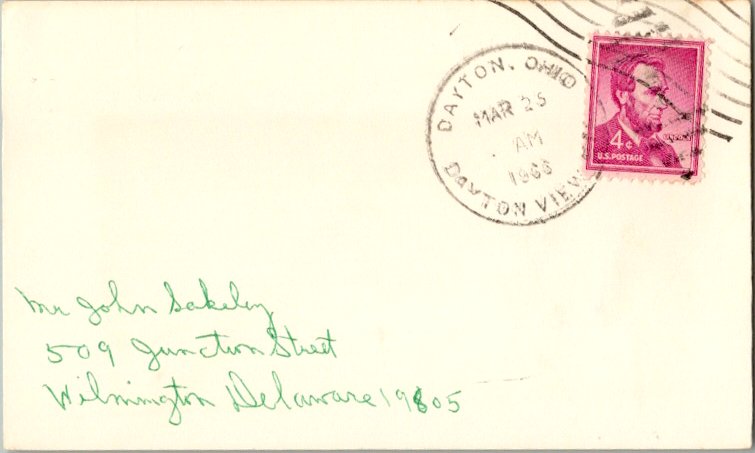 DAYTON, OHIO
MAR 25
AM
1966
DAYTON VIEW
4¢
U.S. POSTAGE
Mr John Sakeley
509 Junction Street
Wilmington Delaware 19805